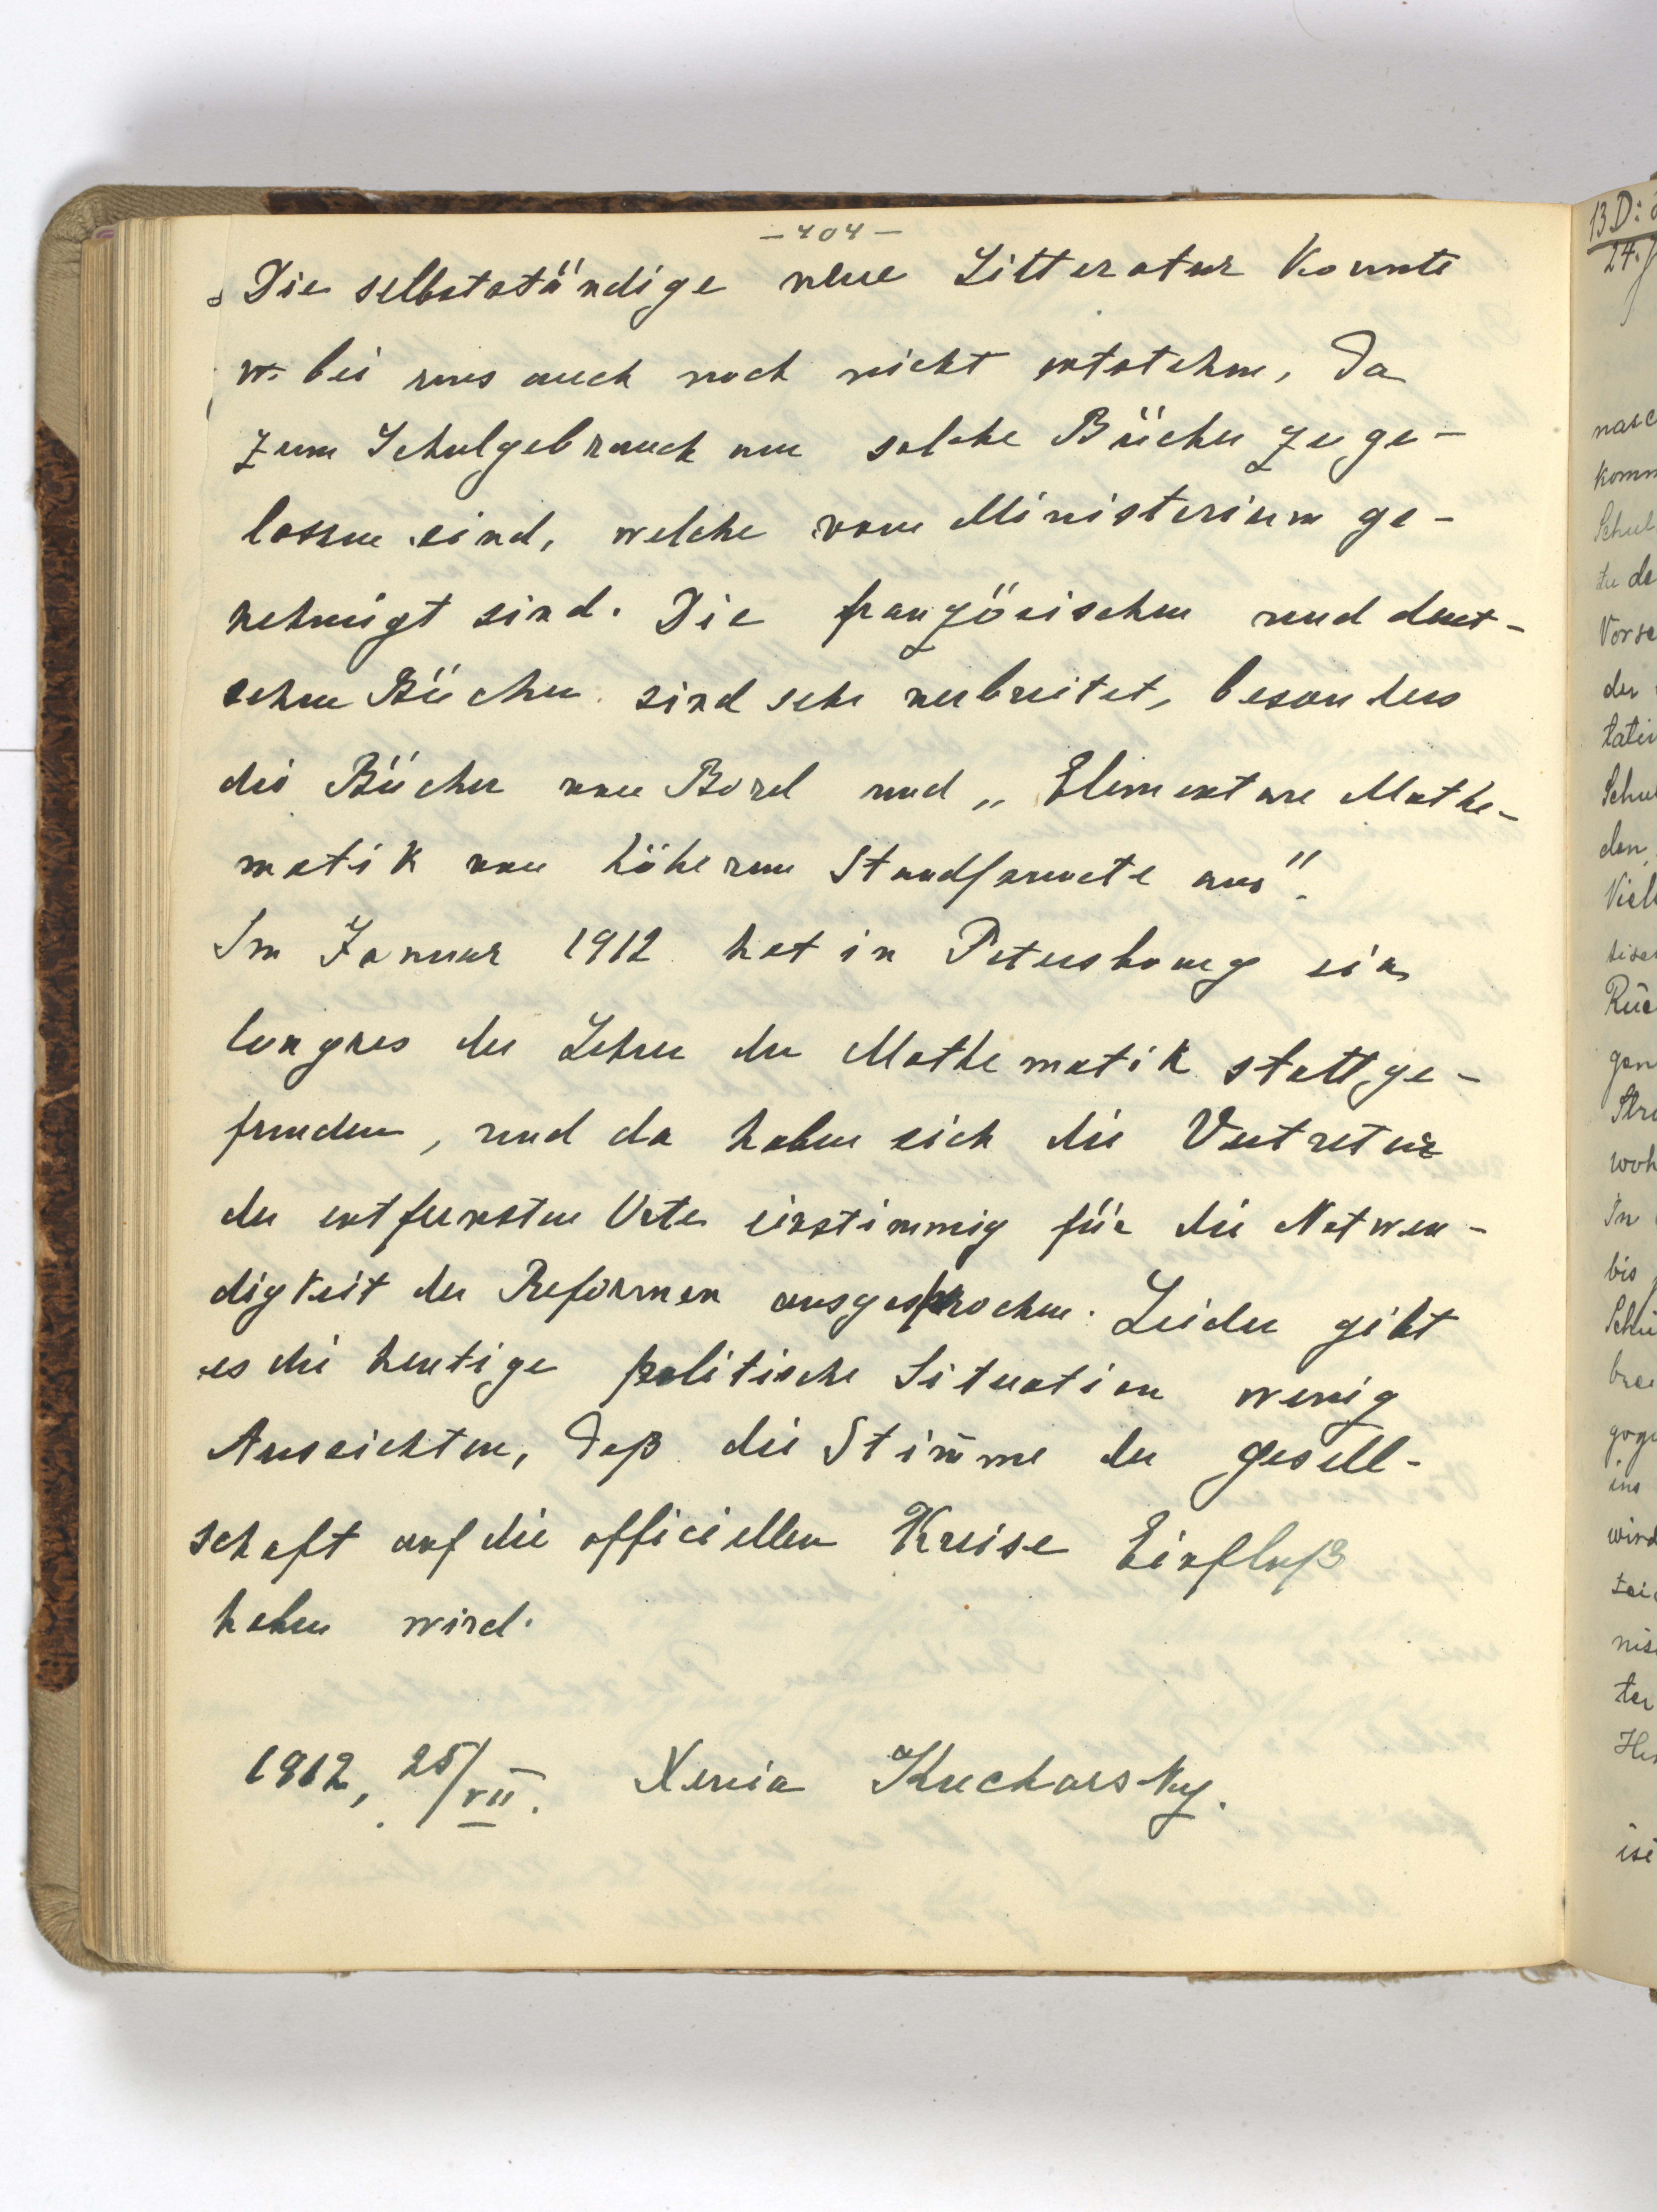 - 404 -
Die selbstständige neue Litteratur konnte
bei uns auch noch nicht entstehen, da
zum Schulgebrauch nur solche Bücher zuge-
lassen sind, welche vom Ministerium ge-
nehmigt sind. Die französischen und deut-
schen Bücher sind sehr verbreitet, besonders
die Bücher von Borel und „Elementare Mathe-
matik von höheren Standpuncte aus".
Im Januar 1912 hat in Petersbourg ein
Congres der Lehrer der Mathematik stattge-
funden, und da haben sich die Vertreter
der entferntsten Orte einstimmig für die Notwen-
digkeit der Reformen ausgesprochen. Leider gibt
es die heutige politische Situation wenig
Aussichten, daß die Stimme der Gesell-
schaft auf die officiellen Kreise Einfluß
haben wird.
1912, 25/VII. Xenia Kucharsky.
13 D:
24.
nasc
komm
Schul
zu de
Vorse
der
latei
Schul
den
Viel
tisch
Rüc
gen
Stru
woh
In
bis
Schü
goge
ins
wird
nis
ter
ist